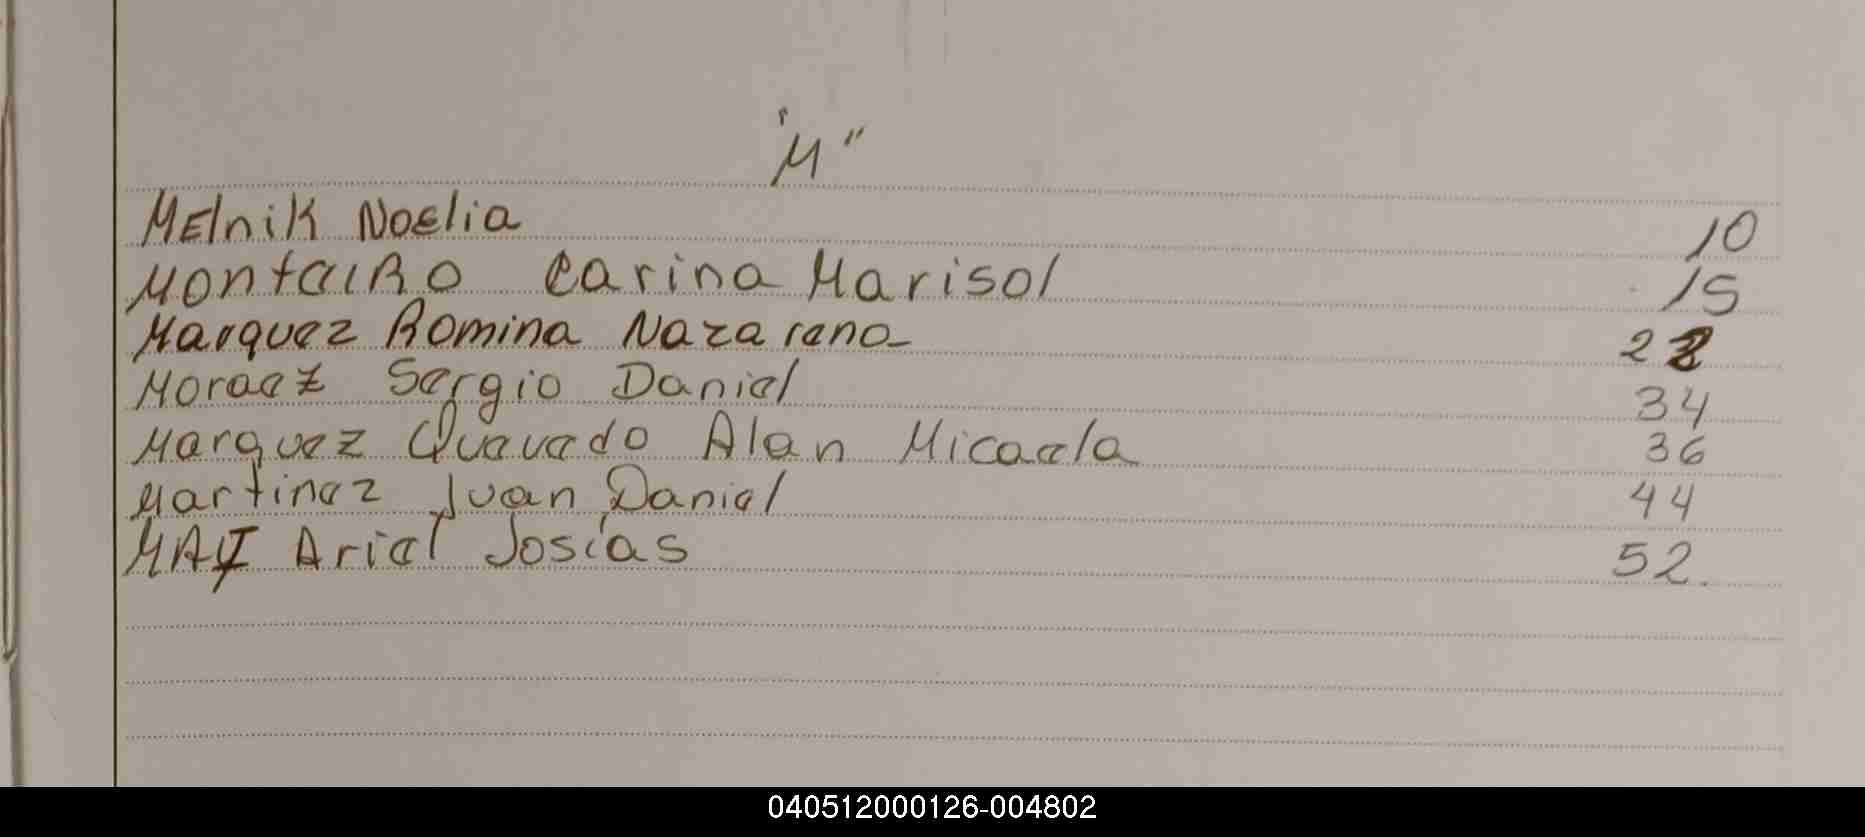 "M"
MElnik Noelia 10
MonteiRo Carina Marisol 15
Marquez Romina Nazarena 22
Moraez Sergio Daniel 34
Marquez Quevedo Alan Micaela 36
Martinez Juan Daniel 44
Ariel Josías 52.
040512000126-004802